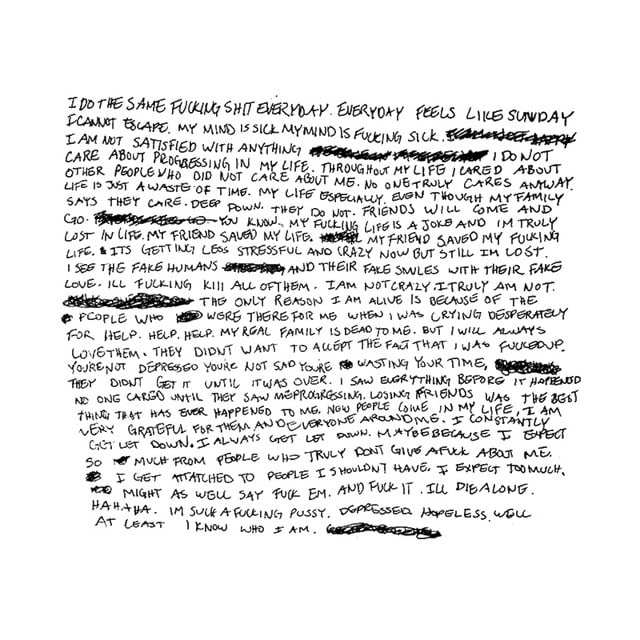 I DO THE SAME FUCKING SHIT EVERYDAY. EVERYDAY FEELS LIKE SUNDAY
I CANNOT ESCAPE. MY MIND IS SICK MY MIND IS FUCKING SICK.
I AM NOT SATISFIED WITH ANYTHING I DO NOT
CARE ABOUT PROGRESSING IN MY LIFE. THROUGHOUT MY LIFE I CARED ABOUT
OTHER PEOPLE WHO DID NOT CARE ABOUT ME. NO ONE TRULY CARES ANYWAY.
LIFE IS JUST A WASTE OF TIME. MY LIFE ESPECIALLY. EVEN THOUGH MY FAMILY
SAYS THEY CARE. DEEP DOWN. THEY DO NOT. FRIENDS WILL COME AND
GO. YOU KNOW. MY FUCKING LIFE IS A JOKE AND IM TRULY
LOST IN LIFE. MY FRIEND SAVED MY LIFE. MY FRIEND SAVED MY FUCKING
LIFE. ITS GETTING LESS STRESSFUL AND CRAZY NOW BUT STILL IM LOST.
I SEE THE FAKE HUMANS AND THEIR FAKE SMILES WITH THEIR FAKE
LOVE. ILL FUCKING KILL ALL OF THEM. I AM NOT CRAZY. I TRULY AM NOT.
THE ONLY REASON I AM ALIVE IS BECAUSE OF THE
PEOPLE WHO WERE THERE FOR ME WHEN I WAS CRYING DESPERATELY
FOR HELP. HELP. HELP. MY REAL FAMILY IS DEAD TO ME. BUT I WILL ALWAYS
LOVE THEM. THEY DIDNT WANT TO ACCEPT THE FACT THAT I WAS FUCKED UP.
YOURE NOT DEPRESSED YOURE NOT SAD YOURE WASTING YOUR TIME,
THEY DIDNT GET IT UNTIL IT WAS OVER. I SAW EVERYTHING BEFORE IT HAPPENED
NO ONE CARED UNTIL THEY SAW ME PROGRESSING. LOSING FRIENDS WAS THE BEST
THING THAT HAS EVER HAPPENED TO ME. NEW PEOPLE COME IN MY LIFE, I AM
VERY GRATEFUL FOR THEM AND EVERYONE AROUND ME. I CONSTANTLY
GET LET DOWN. I ALWAYS GET LET DOWN. MAYBE BECAUSE I EXPECT
SO MUCH FROM PEOPLE WHO TRULY DONT GIVE A FUCK ABOUT ME.
I GET ATTATCHED TO PEOPLE I SHOULDN'T HAVE. I EXPECT TOO MUCH.
MIGHT AS WELL SAY FUCK EM. AND FUCK IT. ILL DIE ALONE.
HAHAHA. IM SUCH A FUCKING PUSSY. DEPRESSED. HOPELESS. WELL
AT LEAST I KNOW WHO I AM.